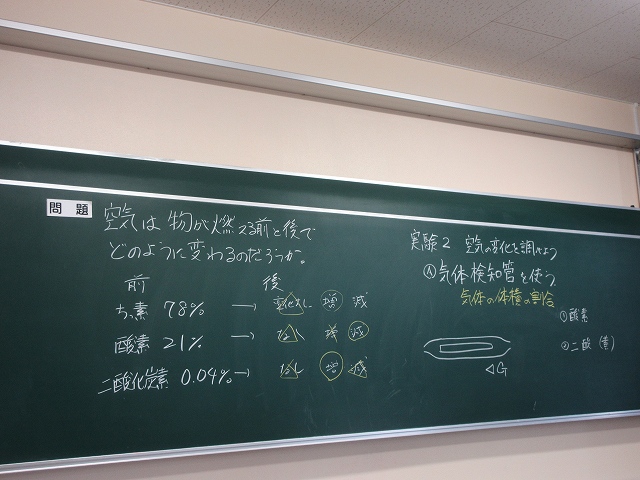 問題 空気は 物が燃える前と後で
どのように変わるのだろうか。
前 後
ちっ素 78% → 変化なし 増 減
酸素 21% → なし 増 減
二酸化炭素 0.04% → なし 増 減
実験2 空気の変化を調べよう
Ⓐ気体検知管を使う
気体の体積の割合
①酸素
②二酸(素)
◁G